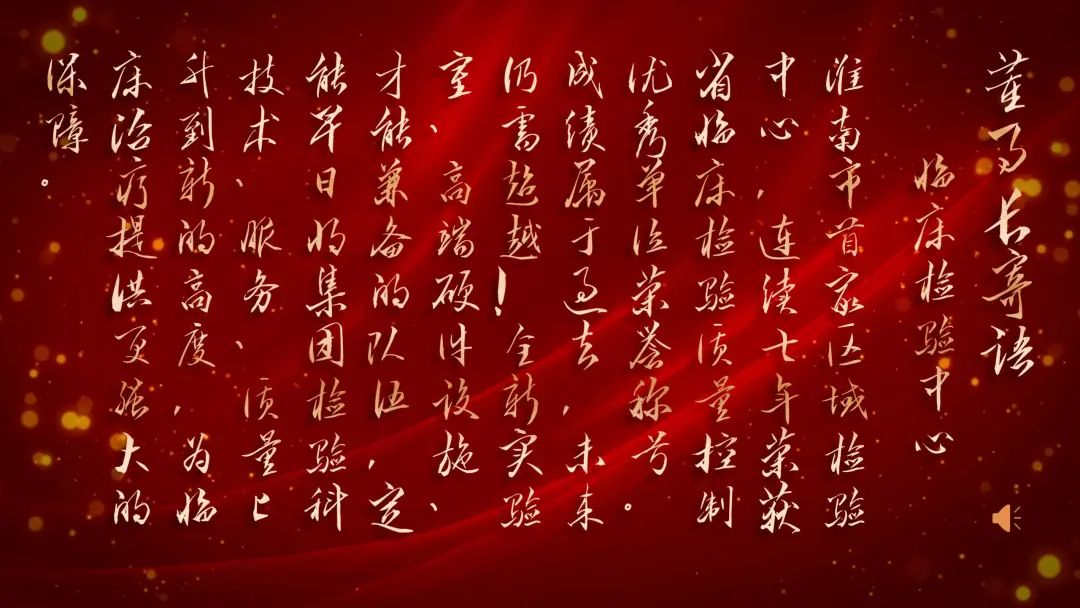 董事长寄语
临床检验中心
淮南市首家区域检验
中心，连续七年荣获
省临床检验质量控制
优秀单位荣誉称号。
成绩属于过去，未来
仍需超越！全新实验
室、高端硬件设施、
才能兼备的队伍，定
能早日将集团检验科
技术、服务、质量已
升到新的高度，为临
床治疗提洪更强大的
保障。